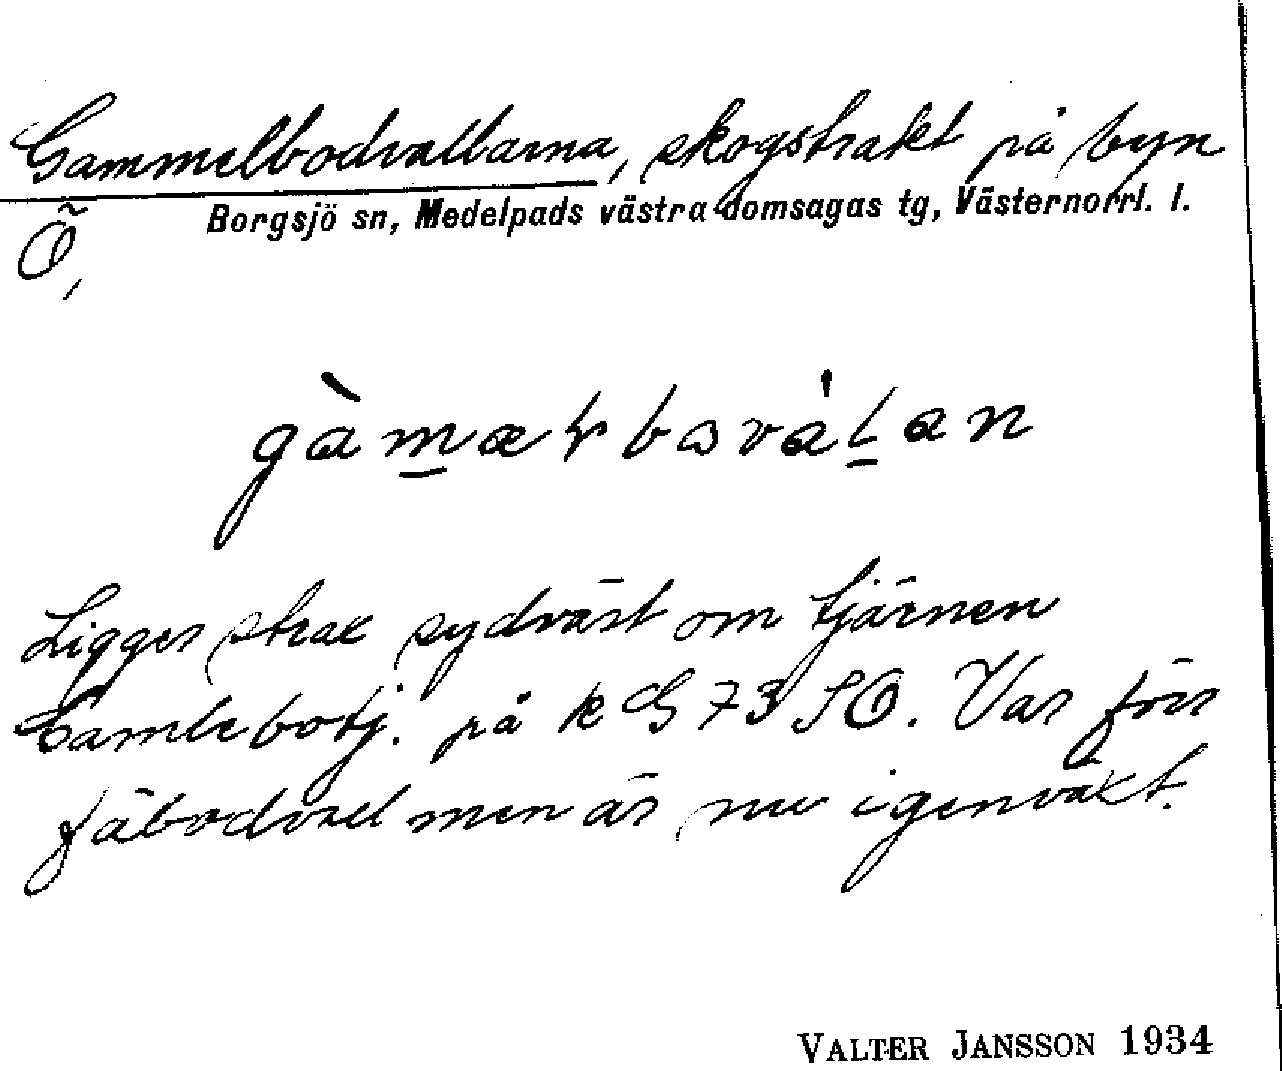 Gammelbodvallarna, skogstrakt på byn
Borgsjö sn, Medelpads västra domsagas tg, Västernorrl. l.
Ö,
Ligger strax sydväst om tjärnen
Gamlebotj. på k G 73 SO. Var förr
fäbodvall men är nu igenväxt.
VALTER JANSSON 1934